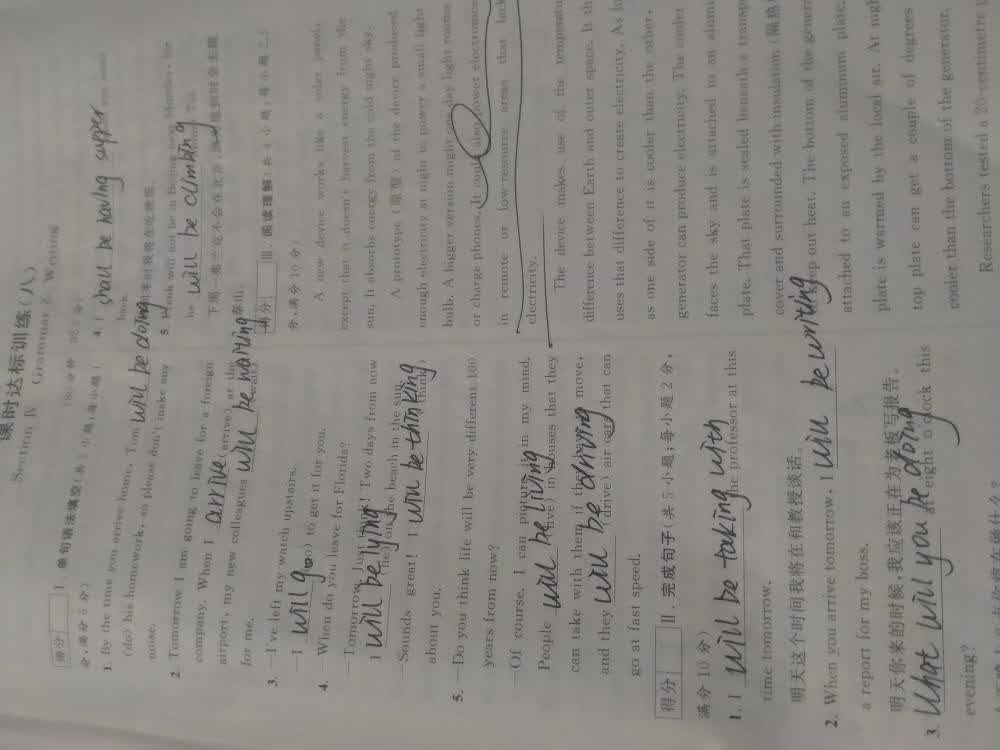 课时达标训练(八)
Section Ⅳ Grammar & Writing
得分
Ⅰ. 单句语法填空(共5小题;每小题
分,满分5分)
1. By the time you arrive home, Tom will be doing
(do) his homework, so please don't make any
noise.
2. Tomorrow I am going to leave for a foreign
company. When I arrive (arrive) at the
airport, my new colleagues will be waiting (wait)
for me.
3. —I've left my watch upstairs.
—I will go (go) to get it for you.
4. —When do you leave for Florida?
—Tomorrow. Just think! Two days from now
I will be lying (lie) on the beach in the sun.
—Sounds great! I will be thinking (think)
about you.
5. —Do you think life will be very different 100
years from now?
—Of course. I can picture it in my mind.
People will be living (live) in houses that they
can take with them if they move,
and they will be driving (drive) air cars that can
go at fast speed.
得分
Ⅱ. 完成句子(共5小题;每小题2分,
满分10分)
1. I will be taking with the professor at this
time tomorrow.
明天这个时间我将在和教授谈话。
2. When you arrive tomorrow, I will be writing
a report for my boss.
明天你来的时候,我应该正在为老板写报告。
3. What will you be doing at eight o'clock this
evening?
4. I shall be having supper
back.
我将在吃晚饭。
5. Hank will not be in Beijing next Monday, for
he will be climbing
得分
Ⅲ. 阅读理解(共4小题;每小题2.5
分,满分10分)
A new device works like a solar panel,
except that it doesn't harvest energy from the
sun. It absorbs energy from the cold night sky.
A prototype (原型) of the device produced
enough electricity at night to power a small light
bulb. A bigger version might one day light rooms
or charge phones. It could also power electronics
in remote or low-resource areas that lack
electricity.
The device makes use of the temperature
difference between Earth and outer space. It th
uses that difference to create electricity. As lo
as one side of it is cooler than the other,
generator can produce electricity. The cooler
faces the sky and is attached to an alumi
plate. That plate is sealed beneath a transpa
cover and surrounded with insulation (隔热
keep out heat. The bottom of the gener
attached to an exposed aluminum plate.
plate is warmed by the local air. At nigh
top plate can get a couple of degrees
cooler than the bottom of the generator.
Researchers tested a 20-centimetre